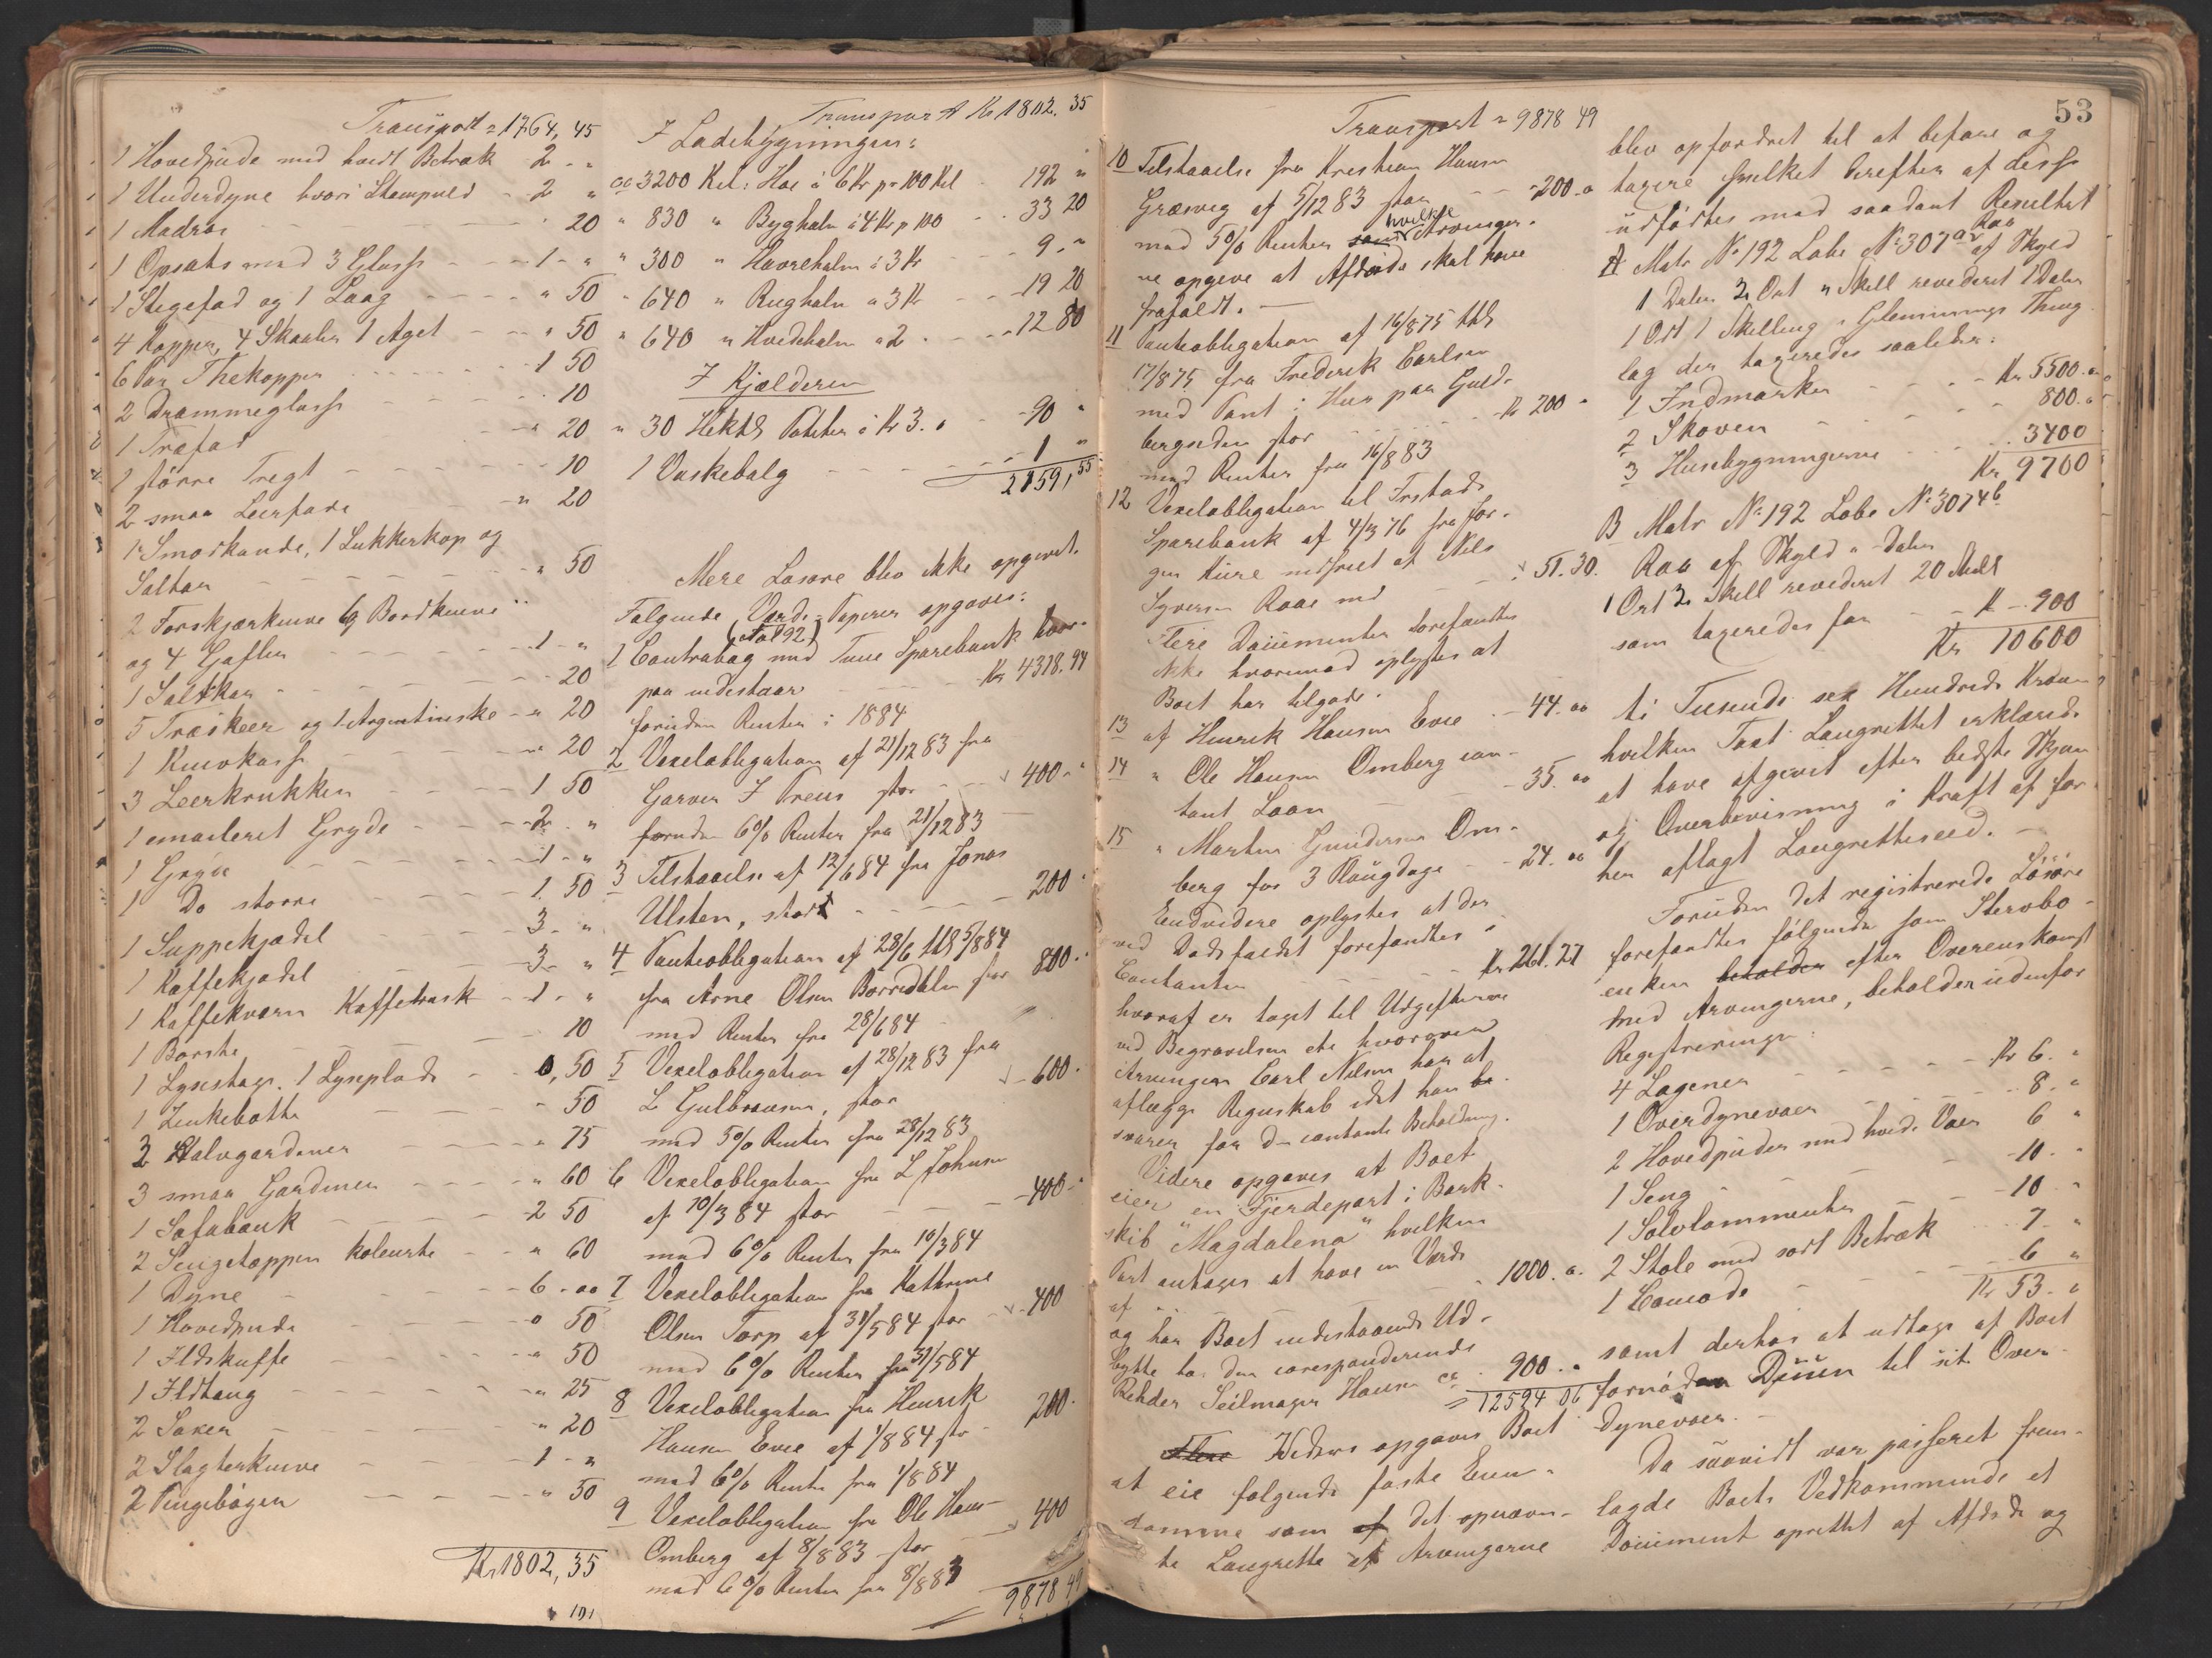 Transport = 1764, 45
1 Hovedpude med hvidt Betræk 2 - "
1 Underdyne hvori Stampuld - 2 "
1 Madras " 20
1 Opsats med 3 Glass - 1 - "
1 Stegefad og 1 Laag " 50
4 Kopper, 4 Skaaler 1 Aget " 50
6 Par Thekopper 1 50
2 Drammeglass 10
1 Træfad " 20
1 større Tregt 10
2 smaa Leerfade " 20
1 Smørkande, 1 Sukkerkop og
Saltkar " 50
2 Forskjærknive 6 Bordknive
og 4 Gafler 1 - "
1 Saltkar 20
5 Træskeer og 1 Argentinske " 20
1 Knivkasse " 20
3 Leerkrukker 1 50
1 emaileret Gryde 2 - "
1 Gryde 1 - "
1 Do større 1. 50
1 Suppekjedel 3 - "
1 Kaffekjedel 3 - "
1 Kaffekværn Kaffetrask 1 - "
1 Børste 10
1 Lysestage. 1 Lyseplade 0,50
1 Zinkebøtte " 50
2 Halvgardiner " 75
3 smaa Gardiner " 60
1 Sofabænk 2 50
2 Sengetæpper kolourte " 60
1 Dyne 6 - oo
1 Hovedpude " 50
1 Ildskuffe " 50
1 Ildtang " 25
2 Saxer " 20
2 Slagterknive 1 - "
2 Pengebøger " 50
Kr 1802, 35
Transport Kr 1802. 35
I Ladebygningen:
ca 3200 Kil: Høe á 6 Kr pr 100 Kil 192 "
" 830 " Byghalm á 4 Kr p 100 33 20
" 300 " Havrehalm á 3 Kr 9. "
" 640 " Rughalm á 3 Kr 19 20
" 640 " Hvedehalm á 2 12 80
I Kjælderen
" 30 Hektl Poteter á Kr 3. " 90 "
1 Vaskebalg 1 "
2159, 55
Mere Løsøre blev ikke opgivet.
Følgende Værdi-Papirer opgaves:
(No 892)
1 Contrabog med Tune Sparebank hvor-
paa indestaar Kr 4318.94
foruden Renter i 1884
2 Vexelobligation af 21/12 83 fra
Garver I Preus stor 400 - "
foruden 6% Renter fra 21/12 83
3 Tilstaaelse af 12/6 84 fra Jonas
Ulsten, stort 200 "
4 Panteobligation af 28/6 tttl 5/8 84
fra Arne Olsen Borredalen stor 800 "
med Renter fra 28/6 84
5 Vexelobligation af 28/12 83 fra
L Gulbransen, stor 600.
med 5% Renter fra 28/12 83
6 Vexelobligation fra L Johnsen
af 10/3 84 stor 400 - "
med 6% Renter fra 10/3 84
7 Vexelobligation fra Kathrine
Olsen Torp af 31/5 84 stor 400
med 6% Renter fra 31/5 84
8 Vexelobligation fra Henrik
Hansen Evie af 1/8 84 str 200.
med 6% Rente fra 1/8 84
9 Vexelobligation fra Ole Hans-
Omberg af 8/8 83 stor 400
med 6% Renter fra 8/8 83
9878 49
Transport = 9878 49
10 Tilstaaelse fra Kristian Hansen
Græsveg af 5/12 83 stor 200 "
med 5% Renter som hvilke Arvinger-
ne opgive at Afdøde skal have
frafaldt. —
11 Panteobligation af 16/8 75 ttl
17/8 75 fra Frederik Carlsen
med Pant i Huus paa Guld-
bergsiden stor Kr 200 "
med Renter fra 16/8 83
12 Vexelobligation til Fr.stads
Sparebank af 4/3 76 fra Jør-
gen Kure indfriet af Nils
Syversen Raae med 51. 30.
Flere Documenter forefandtes
ikke hvorimod oplystes at
Boet har tilgode.
13 af Henrik Hansen Evie 44. oo
14 " Ole Hansen Omberg con-
tant Laan 35. oo
15 " Martin Gundersen Om-
berg for 3 Plougdage 24. oo
Endvidere oplystes at der
ved Dødsfaldet forefandtes i
Contanter Kr 261. 27
hvoraf er taget til Udgifterne
ved Begravelsen etc hvorover
Arvingen Carl Nilsen har at
aflægge Regnskab idet han be-
svarer for den contante Beholdning.
Videre opgaves at Boet
eier en Fjerdepart i Bark-
skib "Magdalena" hvilken
Part antages at have en Værdi
af 1000. oo
og har Boet indestaaende Ud-
bytte hos den coresponderende
Rehder Seilmager Hansen ca 900. "
= 12594 06
Flere Videre opgaves Boet
at eie følgende faste Eien-
domme som af det opnævn-
te Laugrette af Arvingerne
53
blev opfordret til at befare og
taxere hvilket derefter af disse
udførtes med saadant Resultat
A Matr No 192 Løbe No 307 a Raa af Skyld
1 Daler 2 Ort " Skill revideret 1 Daler
1 Ort 1 Skilling i Glemminge Thing-
lag der taxeredes saaledes:
1 Indmarken Kr 5500. "
2 Skoven 800. "
3 Husebygningerne 3400
Kr 9700
B Matr No 192 Løbe No 307 4 b
Raa af Skyld " Daler
1 Ort 2 Skill revideret 20 Skill
som taxeredes for Kr 900
Kr 10600
ti Tusinde sex Hundrede Kroner
hvilken Taxt Laugrettet erklærede
at have afgivet efter bedste Skjøn
og Overbeviisning i Kraft af før
hen aflagt Laugretteseed. —
Foruden det registrerede Løsøre
forefandtes følgende som Stervbo-
enken beholder efter Overenskomst
med Arvingerne, beholder udenfor
Registreringen:
4 Lagener Kr 6. "
1 Overdynevaer 8. "
2 Hovedpuder med hvide Vaer 6 "
1 Seng 10. "
1 Sølvlommeuhr 10 "
2 Stole med sort Betræk 7. "
1 Comode 6 "
Kr 53. "
samt derhos at udtage af Boet
fornøden Duun til sit Over-
dynevaer. —
Da saavidt var passeret frem-
lagde Boets Vedkommende et
Document oprettet af Afdøde og